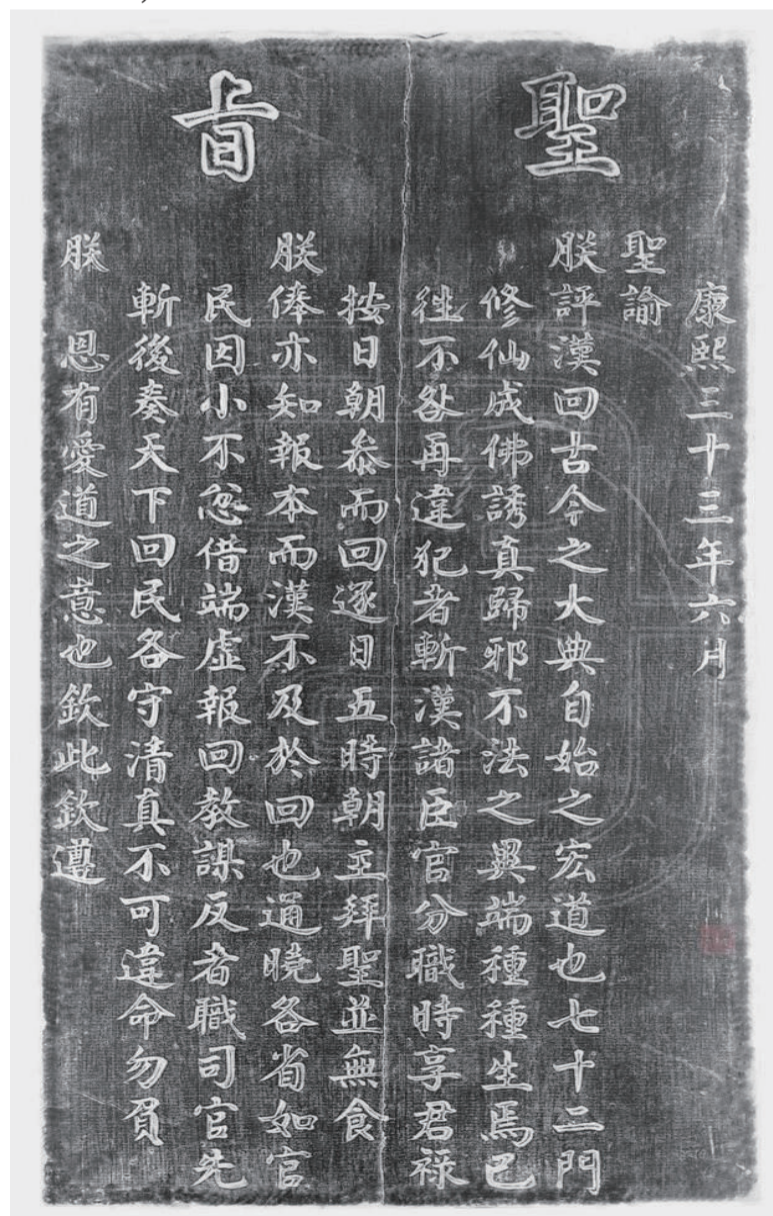 聖旨
康熙三十三年六月
聖諭
朕評漢回古今之大典自始之宏道也七十二門
修仙成佛誘真歸邪不法之異端種種生焉已
徃不咎再違犯者斬漢諸臣官分職時享君祿
按日朝叅而回逐日五時朝主拜聖並無食
朕俸亦知報本而漢不及於回也通曉各省如官
民因小不忿借端虛報回教謀反者職司官先
斬後奏天下回民各守清真不可違命勿負
朕恩有愛道之意也欽此欽遵